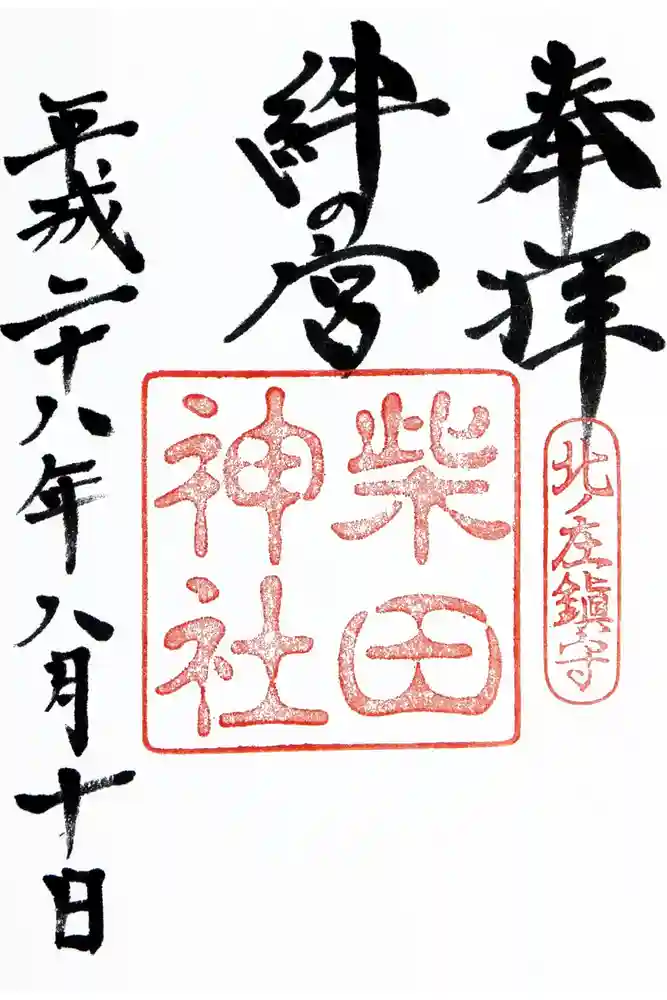 奉拝
北ノ庄鎮守
絆の宮
柴田
神社
平成二十八年八月十日